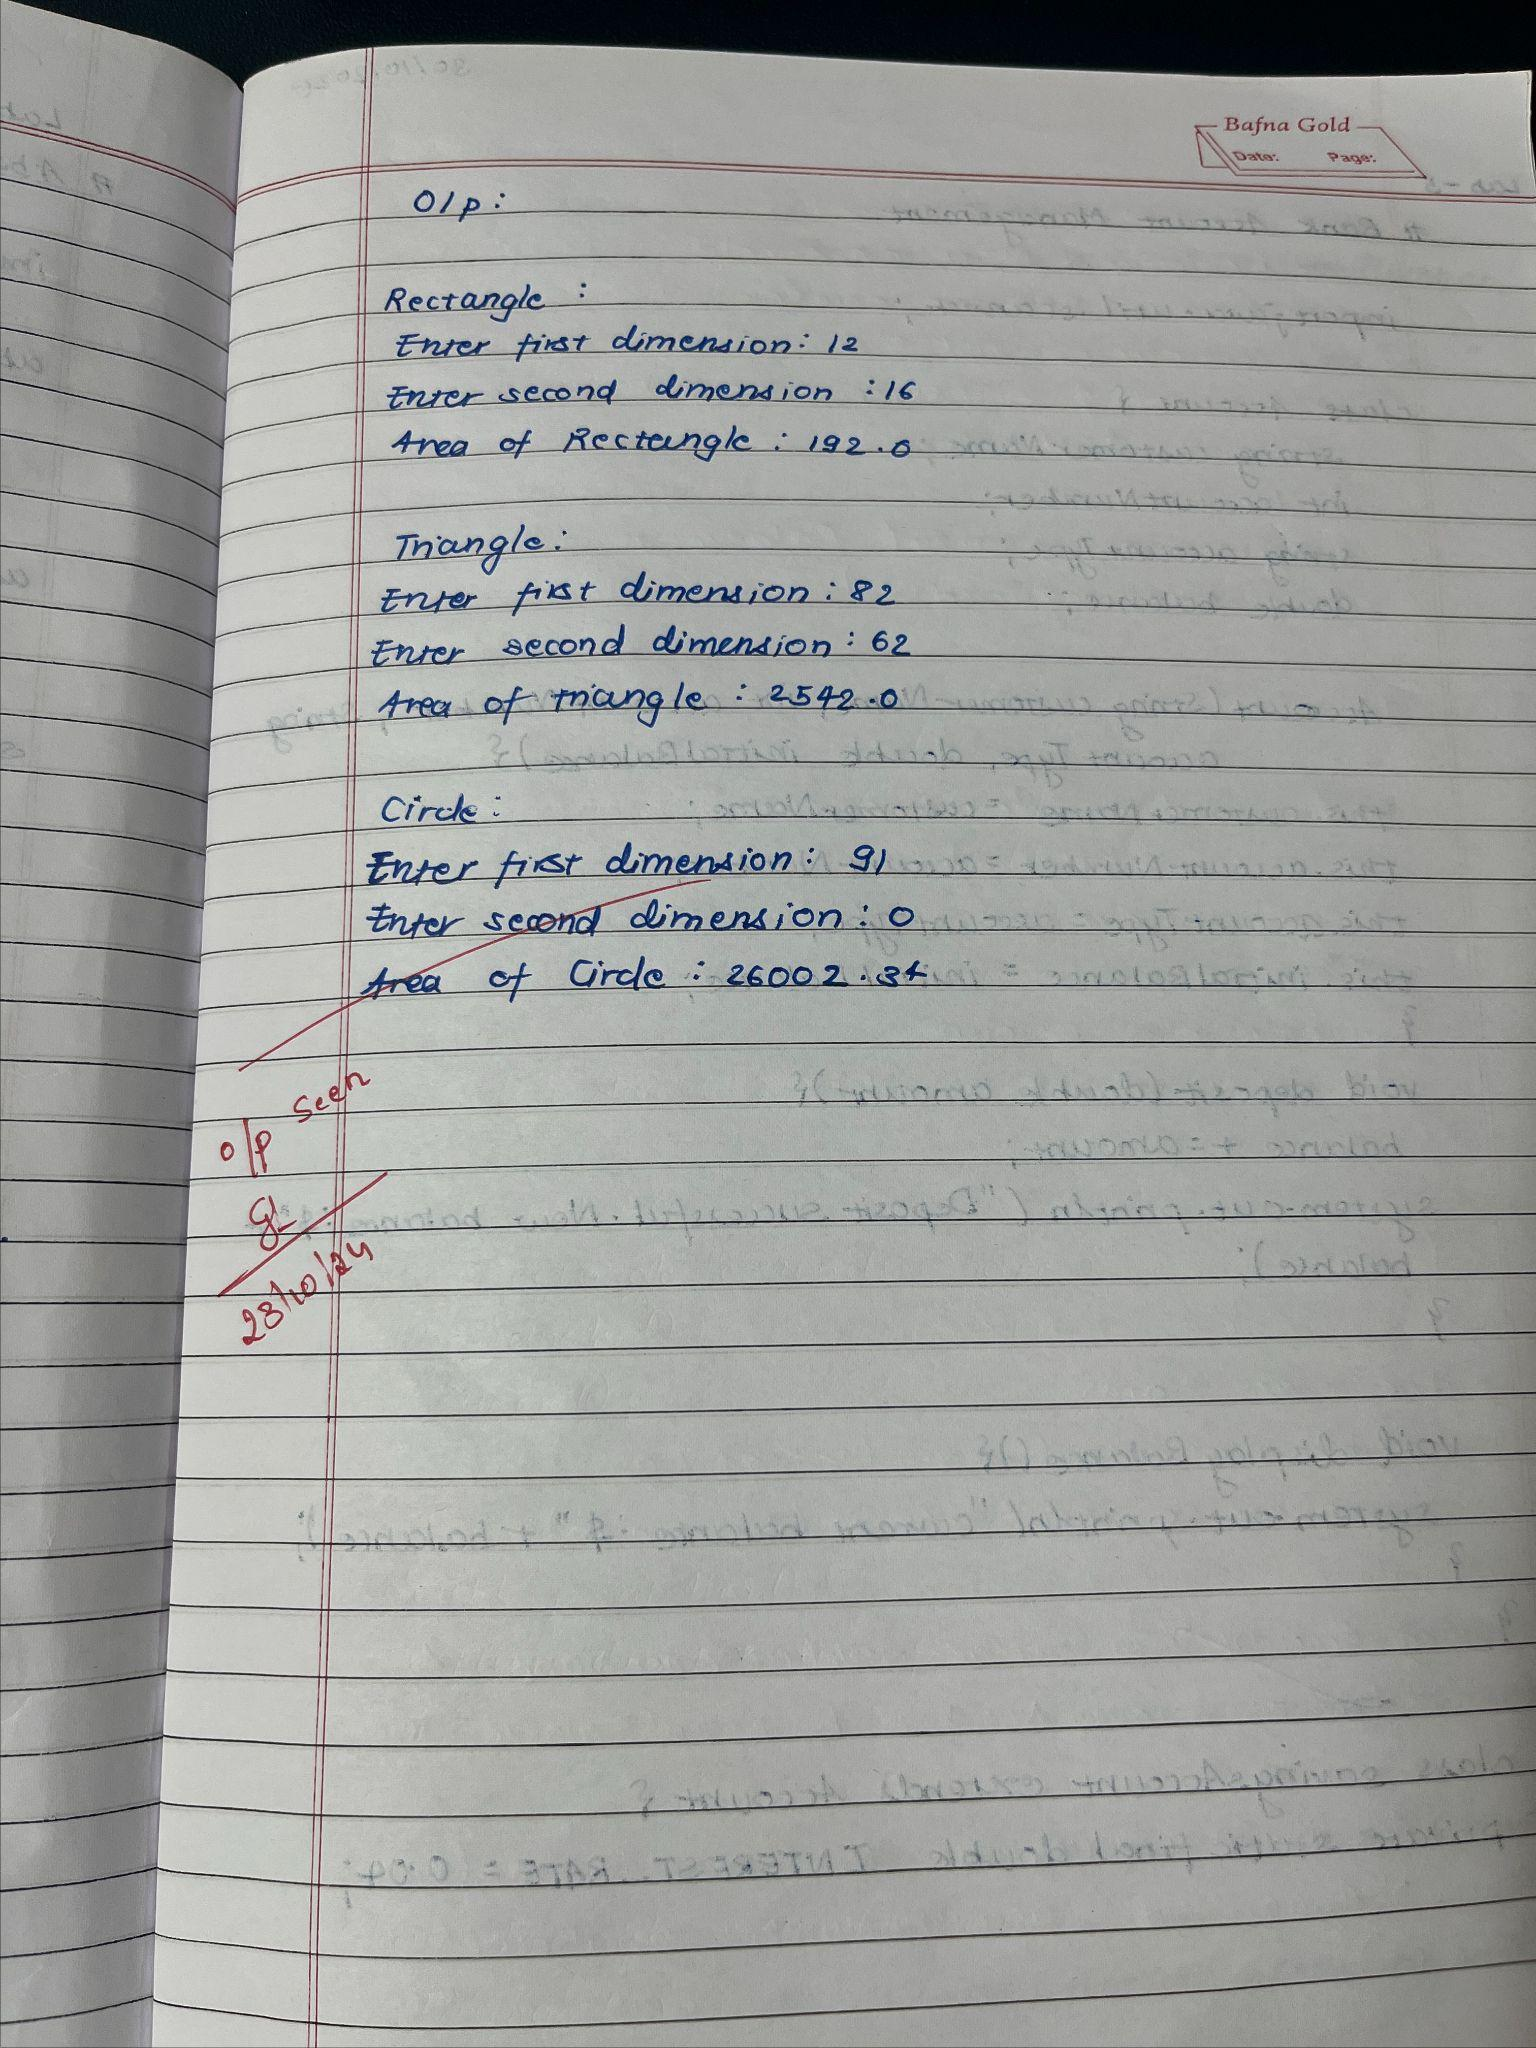 Bafna Gold
Date: Page:
O/p:
Rectangle :
Enter first dimension: 12
Enter second dimension :16
Area of Rectangle : 192.0
Triangle:
Enter first dimension : 82
Enter second dimension : 62
Area of triangle : 2542.0
Circle:
Enter first dimension: 91
Enter second dimension: 0
Area of Circle : 26002.34
O/p seen
28/10/24